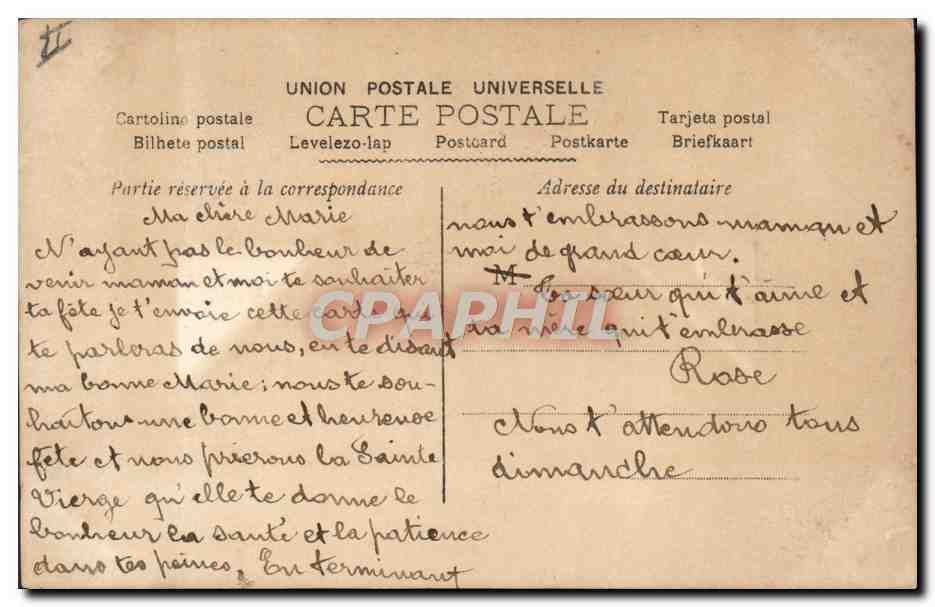 II
UNION POSTALE UNIVERSELLE
CARTE POSTALE
Cartolina postale
Tarjeta postal
Bilhete postal
Levelezo-lap
Postcard
Postkarte
Briefkaart
Partie réservée à la correspondance
Ma chère Marie
N'ayant pas le bonheur de
venir maman et moi te souhaiter
ta fête je t'envoie cette carte qui
te parleras de nous, en te disant
ma bonne Marie; nous te sou-
haitons une bonne et heureuse
fête et nous prierons la Sainte
Vierge qu'elle te donne le
bonheur la santé et la patience
dans tes peines. En terminant
Adresse du destinataire
nous t'embrassons maman et
moi de grand cœur.
M
Ta sœur qui t'aime et
ta mère qui t'embrasse
Rose
Nous t'attendons tous
dimanche
CPARPHIL